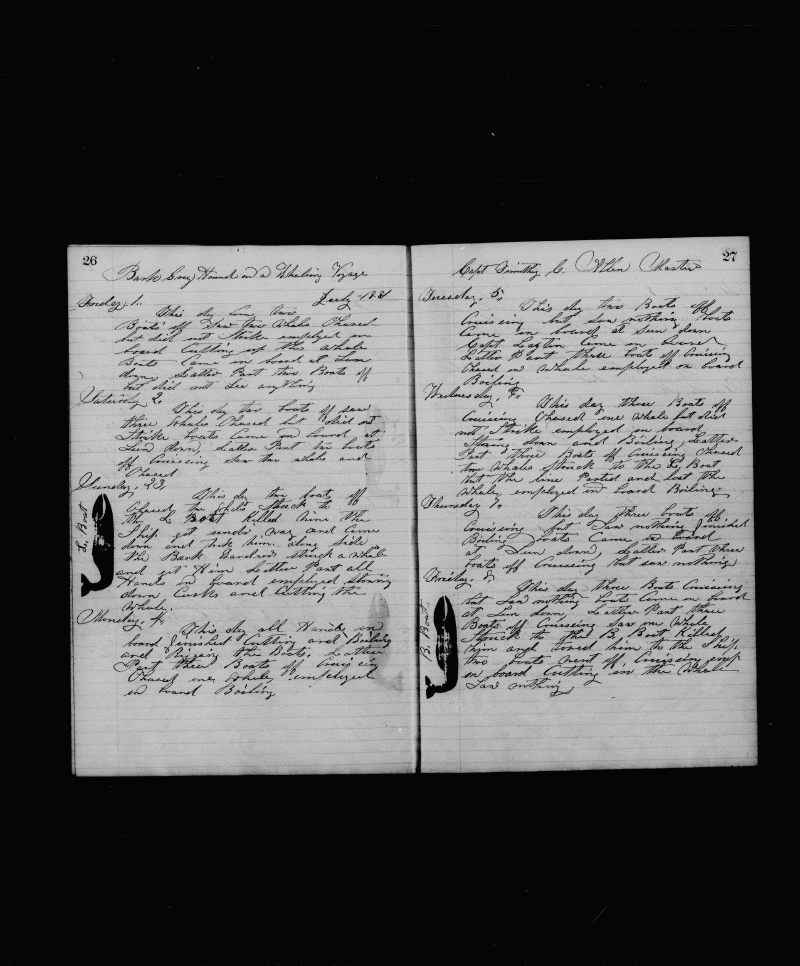 26
Bark Grey Hound on a Whaling Voyage
July 1881
Friday 1.
This day long two
Boats off Saw two Whales Chased
but did not Strike employed on
board Cutting up the Whale
Boats Came on board at Sun
down, Latter Part two Boats off
but did not See anything
Saturday 2.
This day two boats off saw
three Whales Chased but did not
Strike boats Came on board at
Sun Down, Latter Part two boats
off Cruising Saw two whales and
Chased
Sunday. 3
This day two boats off
Chased two whales Struck to
the L Boat Killed him the
Ship got under way and Came
down and took him along Side
the Bark struck a Whale
and got Him Latter Part all
Hands on board employed stowing
down Casks and Cutting the
Whale.
L. Boat
Monday. 4.
This day all Hands on
board finished Cutting and Boiling
and the Boats, Latter
Part three Boats off Cruising
Chased one Whale, employed
on board Boiling
27
Capt Timothy C. Allen Master
Tuesday, 5.
This day two Boats off
Cruising but saw nothing boats
Came on board at Sun down
Capt Came on board
Latter Part three boats off Cruising
Chased on Whale employed on board
Boiling
Wednesday, 6.
This day three Boats off
Cruising Chased one Whale but did
not Strike employed on board
Stowing down and Boiling, Latter
Part three Boats off Cruising Chased
two Whales struck to the Boat
but the line Parted and lost the
Whale, employed on board Boiling
Thursday 7.
This day three boats off
Cruising but Saw nothing finished
Boiling boats Came on board
at Sun down, Latter Part three
boats off Cruising but saw nothing
Friday. 8
This day three Boats Cruising
but Saw nothing boats Came on board
at Sun down, Latter Part three
Boats off Cruising Saw on Whale
Struck to the B, Boat Killed
him and towed him to the Ship.
two boats went off Cruising emp
on board Cutting in the Whale
Saw nothing
B. Boat.